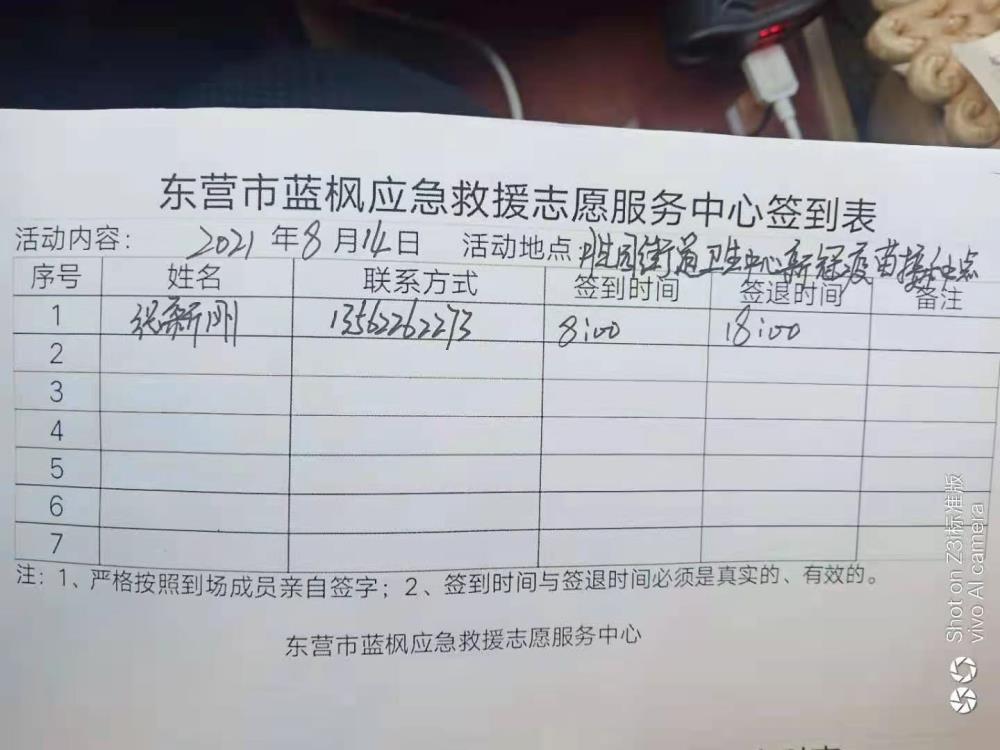 东营市蓝枫应急救援志愿服务中心签到表
活动内容： 2021 年 8 月 14 日 活动地点 胜园街道卫生中心新冠疫苗接种点
序号 姓名 联系方式 签到时间 签退时间 备注
1 张新刚 13562262273 8:00 18:00
2
3
4
5
6
7
注：1、严格按照到场成员亲自签字；2、签到时间与签退时间必须是真实的、有效的。
东营市蓝枫应急救援志愿服务中心
Shot on Z3i标准版
vivo AI camera